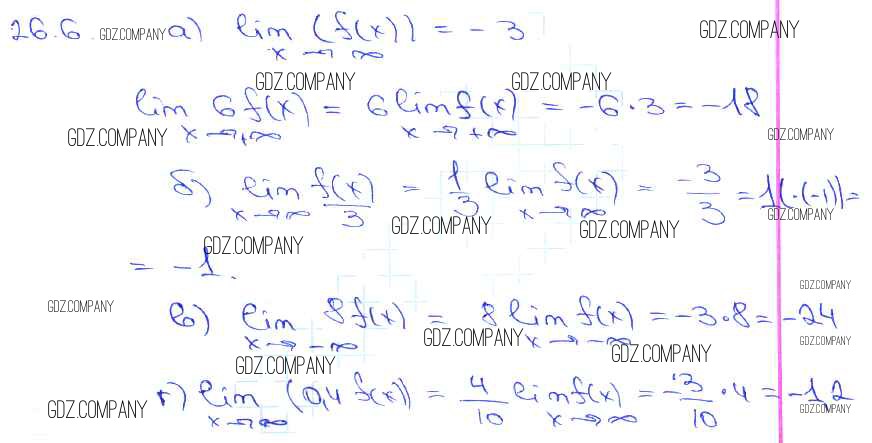 26.6. GDZ.COMPANY а) lim x→∞ (f(x)) = -3 GDZ.COMPANY
GDZ.COMPANY GDZ.COMPANY
lim x→+∞ 6f(x) = 6 lim x→+∞ f(x) = -6·3 = -18
GDZ.COMPANY GDZ.COMPANY
б) lim x→∞ f(x)/3 = 1/3 lim x→∞ f(x) = -3/3 = 1(·(-1)) =
GDZ.COMPANY GDZ.COMPANY GDZ.COMPANY
GDZ.COMPANY
= -1.
GDZ.COMPANY GDZ.COMPANY
в) lim x→-∞ 8f(x) = 8 lim x→-∞ f(x) = -3·8 = -24
GDZ.COMPANY GDZ.COMPANY
GDZ.COMPANY GDZ.COMPANY
г) lim x→∞ (0,4 f(x)) = 4/10 lim x→∞ f(x) = -3/10 · 4 = -1,2
GDZ.COMPANY GDZ.COMPANY